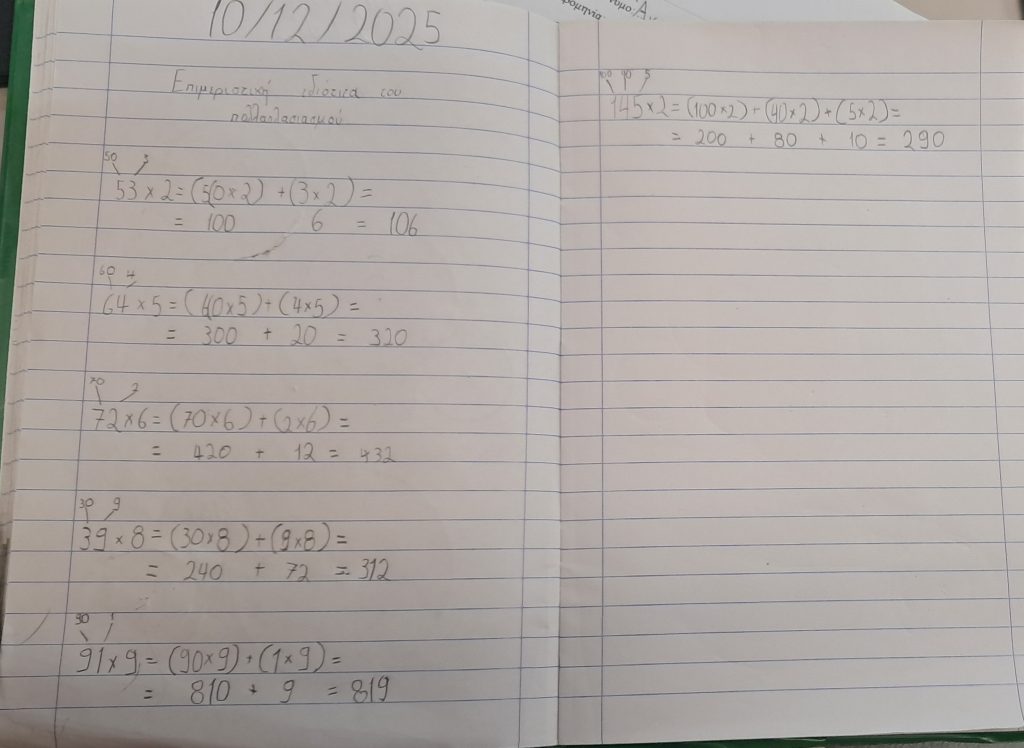 10/12/2025
Επιμεριστική ιδιότικα του
πολλαπλασιασμού
50 3
53 × 2 = (50 × 2) + (3 × 2) =
= 100 6 = 106
60 4
64 × 5 = (60 × 5) + (4 × 5) =
= 300 + 20 = 320
70 2
72 × 6 = (70 × 6) + (2 × 6) =
= 420 + 12 = 432
30 9
39 × 8 = (30 × 8) + (9 × 8) =
= 240 + 72 = 312
90 1
91 × 9 = (90 × 9) + (1 × 9) =
= 810 + 9 = 819
100 40 5
145 × 2 = (100 × 2) + (40 × 2) + (5 × 2) =
= 200 + 80 + 10 = 290